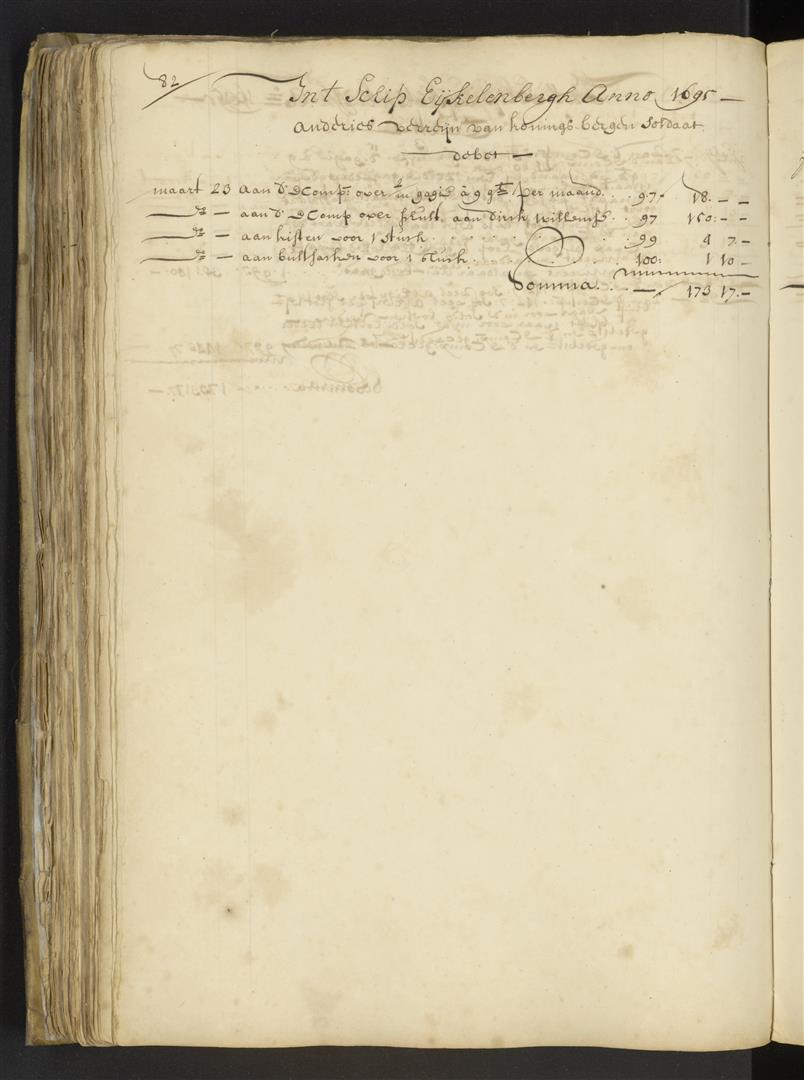 82
Int Schip Eijkelenbergh Anno 1695 —
Anderies veereijn van konings bergen Soldaat
debet —
maart 23 aan d' E Comp: over 2/m gagie à 9 gl: per maand . . 97 . 18 . — —
do — aan d' E Comp over schult aan dirck willemse . . 97 150 . - -
do — aan kisten voor 1 stuck . . . . . . . . 99 4 7 . —
do — aan bultsacken voor 1 stuck . . . . . . . 100: 1 10 —
Somma . . . — / 173 17 . —